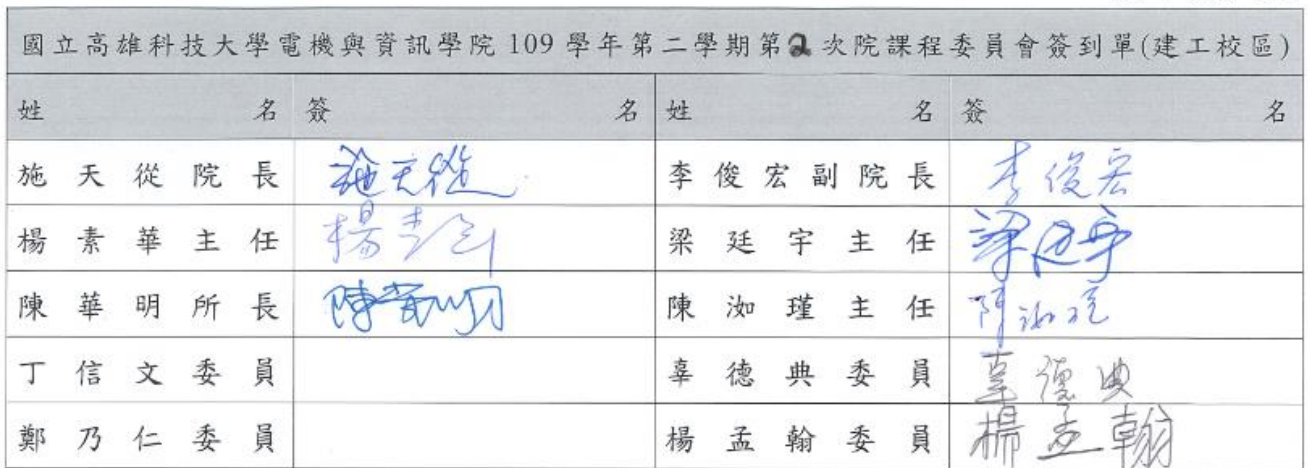 國立高雄科技大學電機與資訊學院 109 學年第二學期第2次院課程委員會簽到單(建工校區)
姓名 簽名 姓名 簽名
施天從院長 施天從 李俊宏副院長 李俊宏
楊素華主任 楊素華 梁廷宇主任 梁廷宇
陳華明所長 陳華明 陳洳瑾主任 陳洳瑾
丁信文委員 辜德典委員 辜德典
鄭乃仁委員 楊孟翰委員 楊孟翰